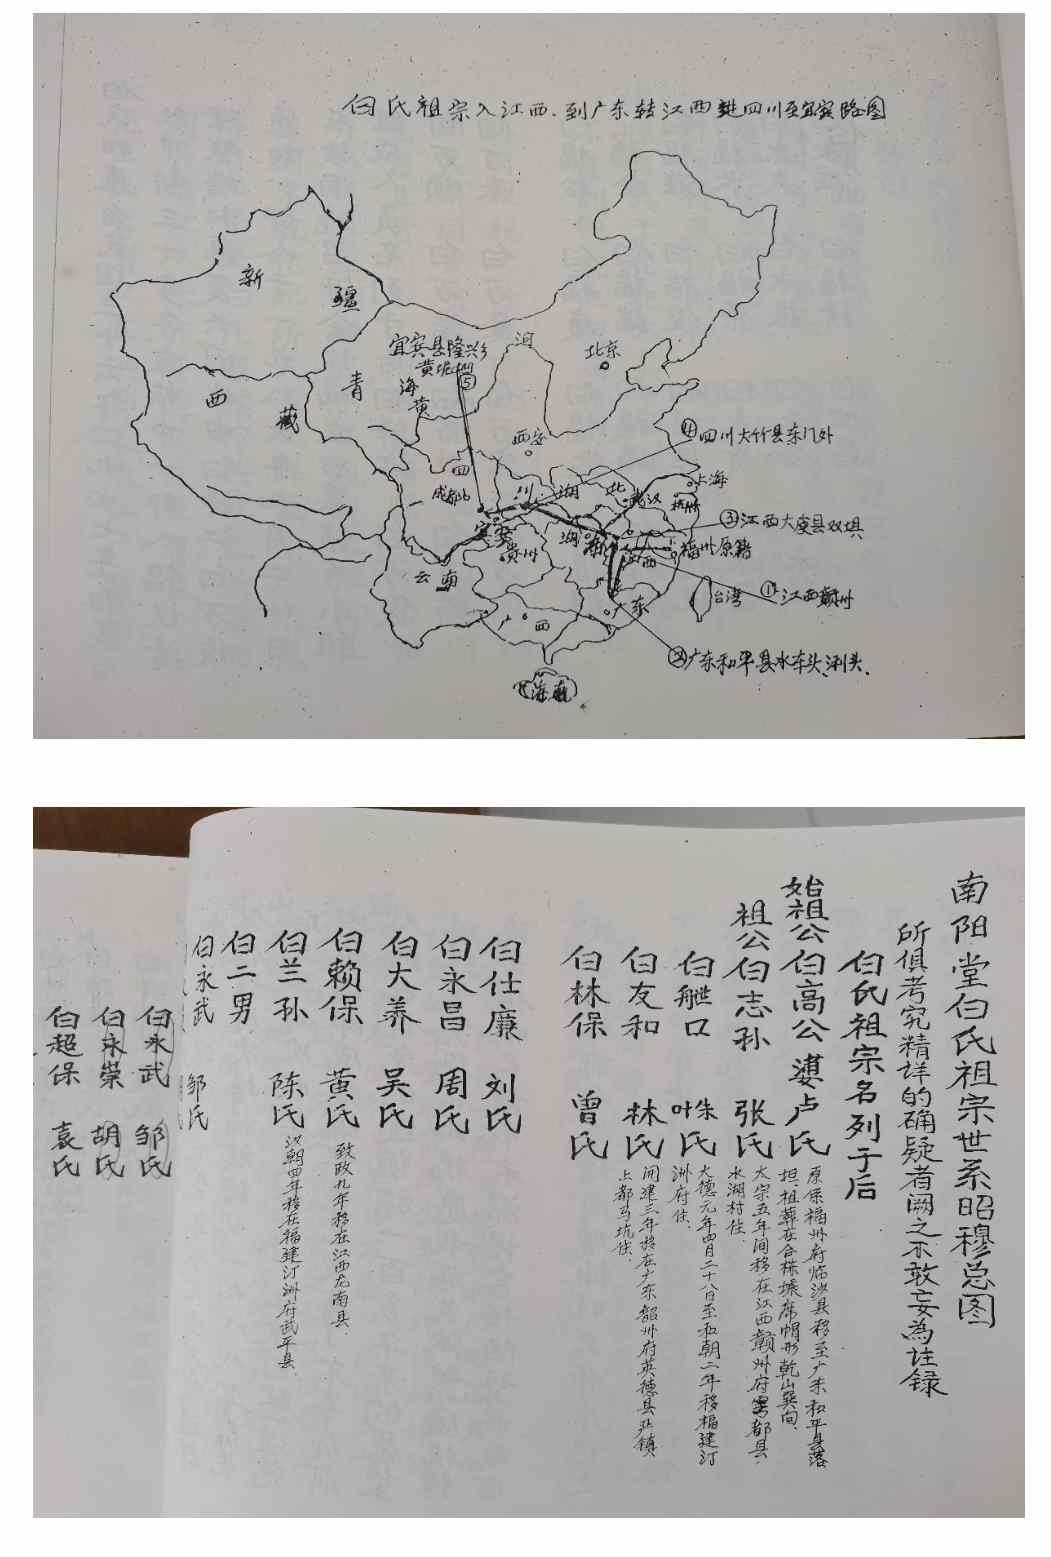 白氏祖宗入江西、到广东转江西进四川至宜宾路图
新
疆
西
藏
青
海
黄
河
宜宾县隆兴乡
⑤
北京
西安
④四川大竹县东门外
四
川
成都
湖
北
武汉
上海
杭州
③江西大庾县双坝
福州原籍
宜宾
贵州
湖
江西
云南
台湾
①江西赣州
广东
广西
②广东和平县水车头、浰头.
海南
南阳堂白氏祖宗世系昭穆总图
所俱考究精详的确疑者阙之不敢妄為註録
白氏祖宗名列于后
始祖公白高公 婆卢氏
原係福州府临沙县移至广东和平县落
担、祖葬在合株壉席帽形乾山巽向、
祖公白志孙 张氏
大宗五年间移在江西赣州府雩都县
水湖村住
白 口 叶朱氏
大德元年四月二十八日至和朝二年移福建汀
洲府住、
白友和 林氏
開建三年移在广东韶州府英德县 镇
上都马坑住、
白林保 曾氏
白仕廉 刘氏
白永昌 周氏
白大养 吴氏
白赖保 黄氏
致政九年移在江西龙南县
白兰孙 陈氏
汉朝四年移在福建汀洲府武平县
白二男
白永武 邹氏
白永武 邹氏
白永荣 胡氏
白超保 袁氏